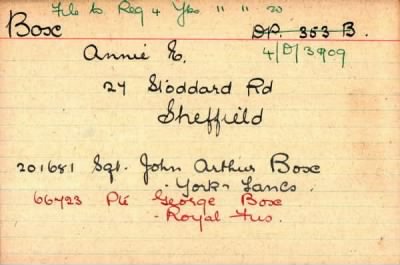 File to Reg 4 Yks " " 20
Box DP. 353 B.
Annie E. 4/D/3909
27 Stoddard Rd
Sheffield
201681 Sgt. John Arthur Box
York & Lancs.
66723 Pte George Box
Royal Fus.